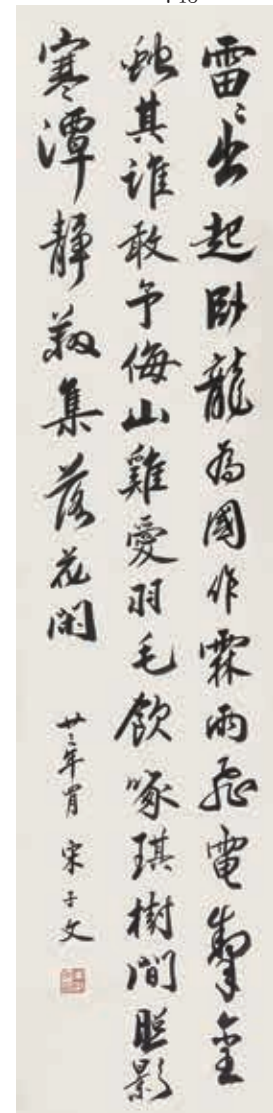 雷〻出起卧龍為國作霖雨飛電掣金
虵其誰敢予侮山雞愛羽毛飲啄琪樹間照影
寒潭靜翔集落花閒
廿三年四月 宋子文